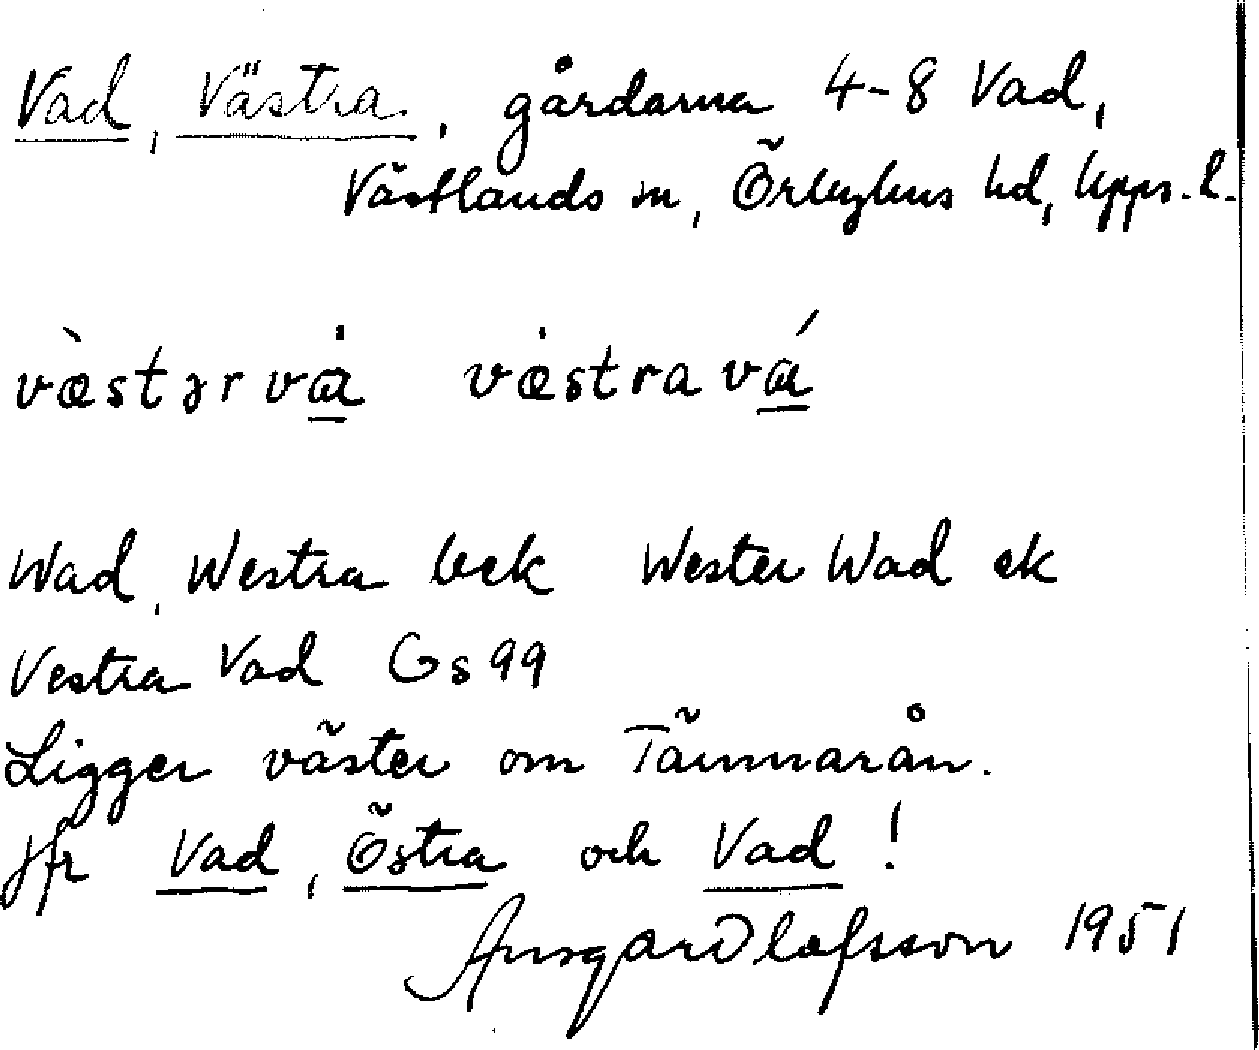 Vad, Västra, gårdarna 4-8 Vad,
Västlands sn, Örbyhus hd, Upps. l.
væ̀stər vɑ̇ væ̇stra vɑ́
Wad, Westra bek Wester Wad ek
Vestra Vad Gs 99
Ligger väster om Tämnarån.
Jfr Vad, Östra och Vad!
Ansgar Olafsson 1951